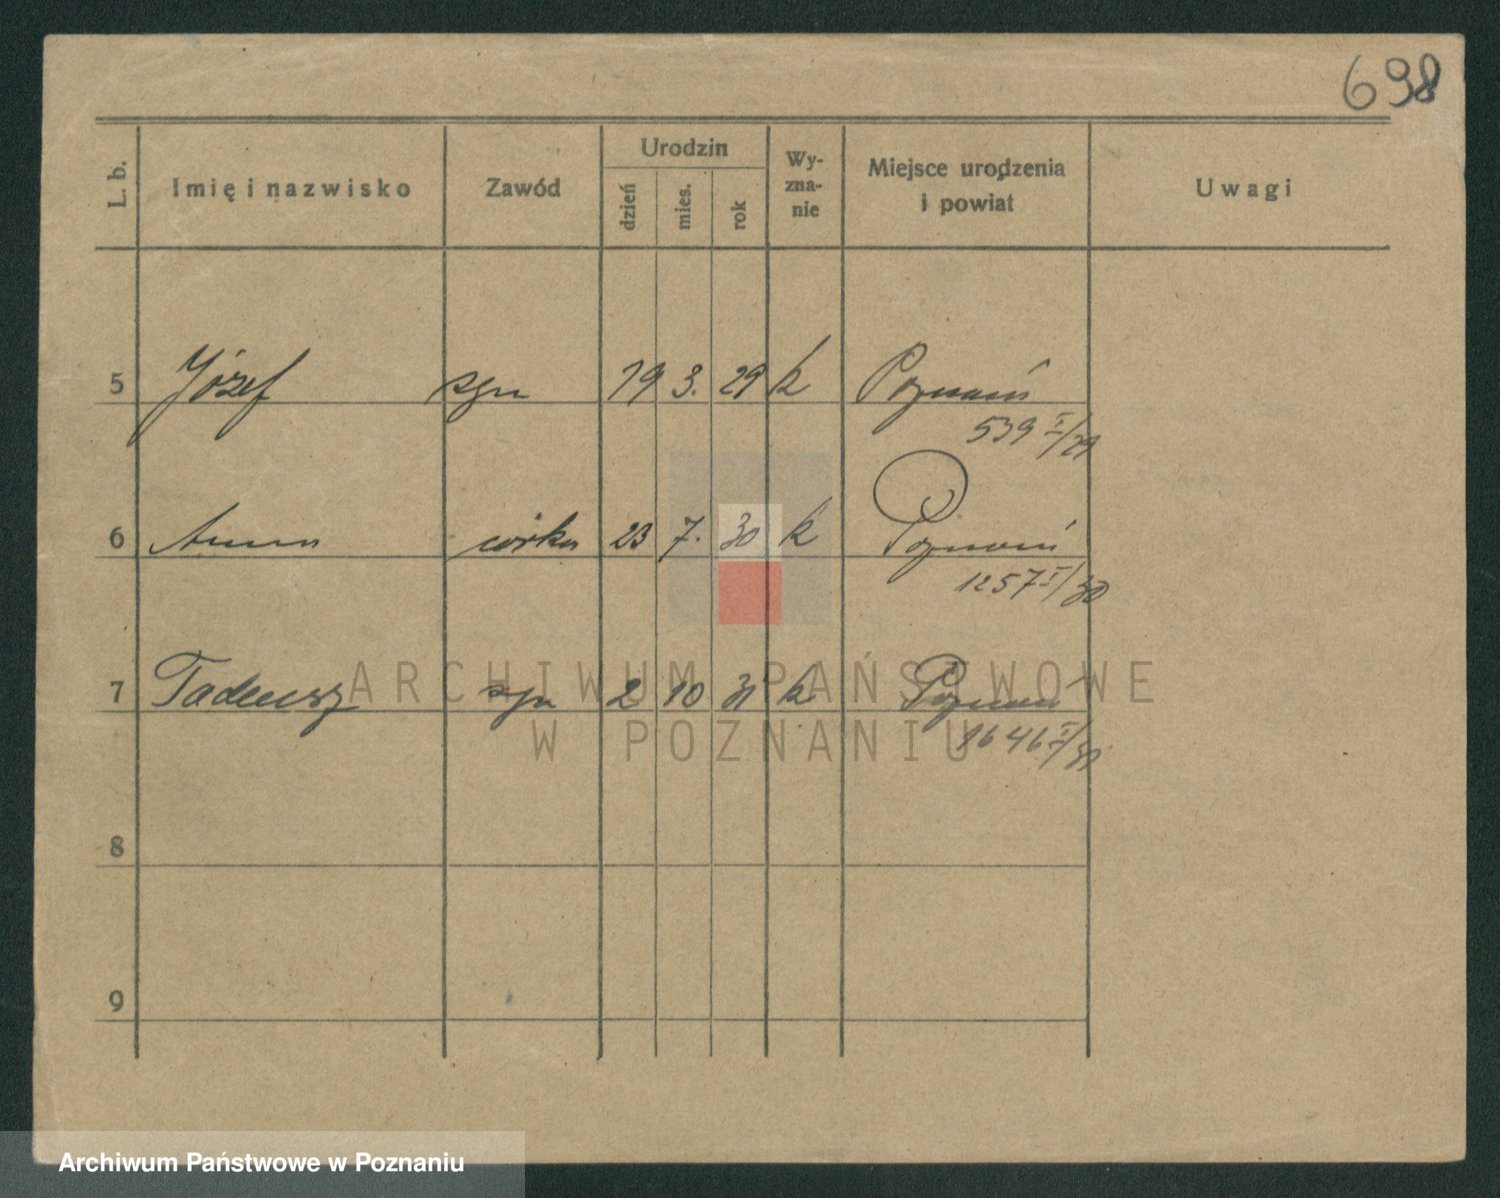 698
L. b.
Imię i nazwisko
Zawód
Urodzin
dzień
mies.
rok
Wy-
zna-
nie
Miejsce urodzenia
i powiat
Uwagi
5 Józef syn 19 3. 29 k Poznań
539 I/29
6 Anna córka 23 7. 30 k Poznań
1257 I/30
7 Tadeusz syn 2 10 31 k Poznań
1646 I/31
8
9
ARCHIWUM PAŃSTWOWE
W POZNANIU
Archiwum Państwowe w Poznaniu